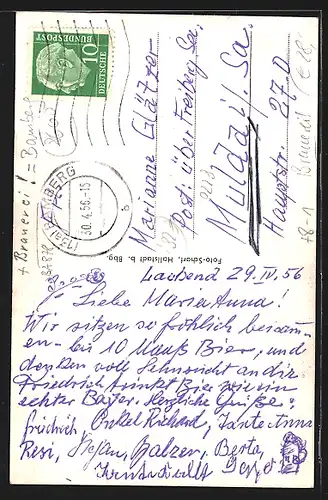 10
DEUTSCHE
BUNDESPOST
BAMBERG
30.4.56.-15
b
+ Brauerei! = Bamberg
Marianne Glätzer
Post: über Freiberg Sa.
Mulda i/Sa.
Hauptstr. 27 D
Foto-Scharf, Hallstadt b. Bbg.
29.IV.56
Liebe Marianna!
Wir sitzen so fröhlich beisam-
en - bis 10 Mauß Bier, und
denken voll Sehnsucht an dir
Friedrich trinkt Bier wie ein
echter Bayer. Herzliche Grüße:
Friedrich, Onkel Richard, Tante Anna
Resi, Stefan, Balzer, Berta,